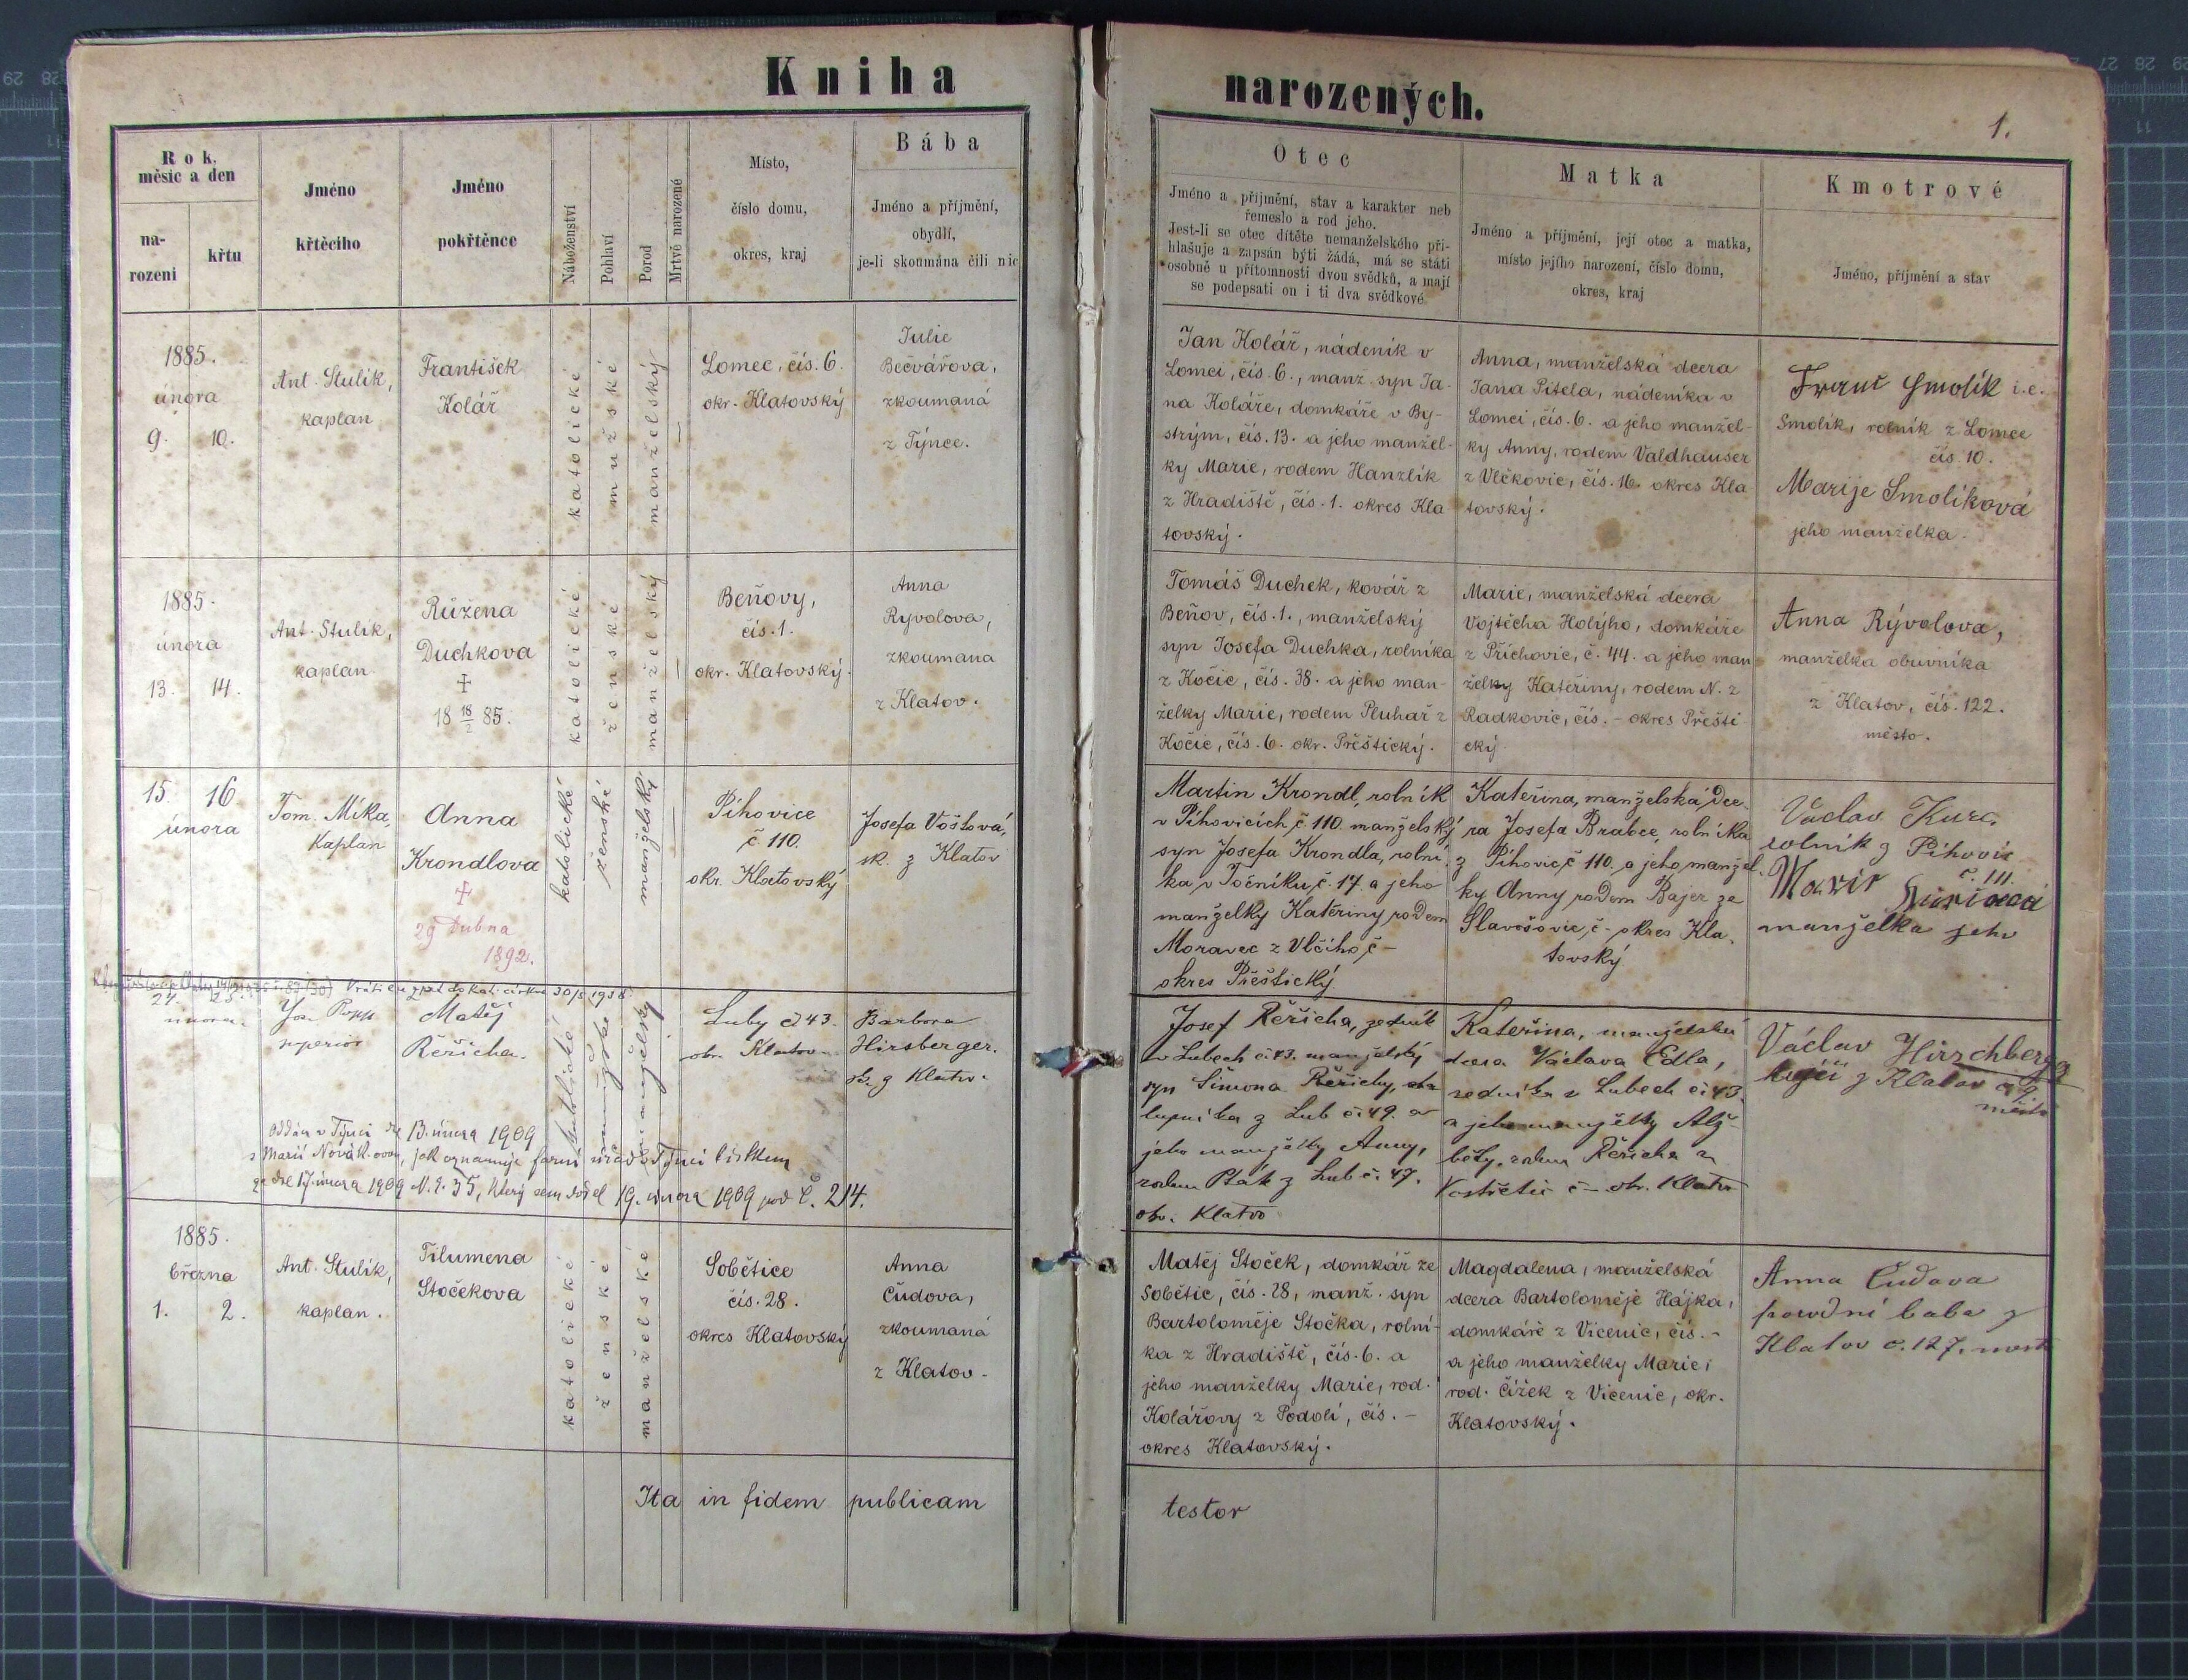 Kniha
narozených.
1.
Rok,
měsíc a den
na-
rozeni
křtu
Jméno
křtěcího
Jméno
pokřtěnce
Náboženství
Pohlaví
Porod
Mrtvě narozené
Místo,
číslo domu,
okres, kraj
Bába
Jméno a příjmění,
obydlí,
je-li skoumána čili nic
Otec
Jméno a příjmění, stav a karakter neb
řemeslo a rod jeho.
Jest-li se otec dítěte nemanželského při-
hlašuje a zapsán býti žádá, má se státi
osobně u přítomnosti dvou svědků, a mají
se podepsati on i ti dva svědkové
Matka
Jméno a příjmění, její otec a matka,
místo jejího narození, číslo domu,
okres, kraj
Kmotrové
Jméno, příjmění a stav
1885.
února
9. 10.
Ant. Stulík,
kaplan
František
Kolář
katolické
mužské
manželský
Lomec, čís. 6.
okr. Klatovský
Julie
Bečvářova,
zkoumaná
z Týnce.
Jan Kolář, nádeník v
Lomci, čís. 6., manž. syn Ja-
na Koláře, domkáře v By-
strým, čís. 13. a jeho manžel-
ky Marie, rodem Hanzlík
z Hradiště, čís. 1. okres Kla
tovský.
Anna, manželská dcera
Jana Pitela, nádeníka v
Lomci, čís. 6. a jeho manžel-
ky Anny, rodem Valdhauser
z Vlčkovic, čís. 16. okres Kla
tovský.
Franc Smolík i.e.
Smolík, rolník z Lomce
čís. 10.
Marije Smolíková
jeho manželka.
1885.
února
13. 14.
Ant. Stulík,
kaplan
Růžena
Duchkova
†
18 18/2 85.
katolické
ženské
manželský
Beňovy,
čís. 1.
okr. Klatovský.
Anna
Ryvolova,
zkoumana
z Klatov.
Tomáš Duchek, kovář z
Beňov, čís. 1., manželský
syn Josefa Duchka, rolníka
z Kočic, čís. 38. a jeho man-
želky Marie, rodem Pluhař z
Kočic, čís. 6. okr. Přeštický.
Marie, manželská dcera
Vojtěcha Holýho, domkáře
z Příchovic, č. 44. a jeho man
želky Kateřiny, rodem N. z
Radkovic, čís. - okres Přešti-
cký
Anna Rývolova,
manželka obuvníka
z Klatov, čís. 122.
město.
15. 16
února
Tom. Míka,
Kaplan
Anna
Krondlova
†
29 Dubna
1892.
katolické
ženské
manželský
Píhovice
č 110.
okr. Klatovský
Josefa Voštová,
sk. z Klatov
Martin Krondl, rolník
v Píhovicích, č. 110. manželský
syn Josefa Krondla, rolní-
ka v Točníku, č. 17. a jeho
manželky Kateřiny, rodem
Moravec z Vlčího, č -
okres Přeštický
Kateřina, manželská dce-
ra Josefa Brabce, rolníka
z Píhovic, č 110. a jeho manžel-
ky Anny rodem Bajer ze
Slavošovic, č - okres Kla-
tovský
Václav
rolník z Píhovic
č. 111.
Marie
manželka jeho
Vrátil se zpět do kat. církve 30/5 1938.
24. 25.
února.
Jos. Popp
superior
Matěj
Řeřicha.
katolické
mužské
manželský
Luby č 43.
okr. Klatov
Barbora
Hirsberger.
sk. z Klatov.
Oddán v Týnci dne 13. února 1909
s Marií Novákovou, jak oznamuje farní úřad v Týnci lístkem
ze dne 17. února 1909 N. E. 35, který sem došel 19. února 1909 pod č. 214.
Josef Řeřicha, sedník
v Lubech č. 43. manželský
syn Šimona Řeřichy, cha
lupníka z Lub č. 49. a
jeho manželky Anny,
rodem Pták z Lub č. 47.
okr. Klatov
Kateřina, manželská
dcera Václava Edla,
sedníka z Lubech č. 43.
a jeho manželky Alž-
běty, rodem Řeřicha z
Vostřetic č - okr. Klatov
Václav Hirschberger
z Klatov č 9
město
1885.
března
1. 2.
Ant. Stulík,
kaplan.
Filumena
Stočekova
katolické
ženské
manželské
Sobětice
čís. 28.
okres Klatovský
Anna
Čudova,
zkoumaná
z Klatov.
Matěj Stoček, domkář ze
Sobětic, čís. 28, manž. syn
Bartoloměje Stočka, rolní-
ka z Hradiště, čís. 6. a
jeho manželky Marie, rod.
Kolářovy z Podolí, čís. -
okres Klatovský.
Magdalena, manželská
dcera Bartoloměje Hájka,
domkáře z Vícenic, čís. -
a jeho manželky Marie,
rod. Čížek z Vícenic, okr.
Klatovský.
Anna Čudova
porodní baba z
Klatov č. 127.
Ita in fidem publicam
testor